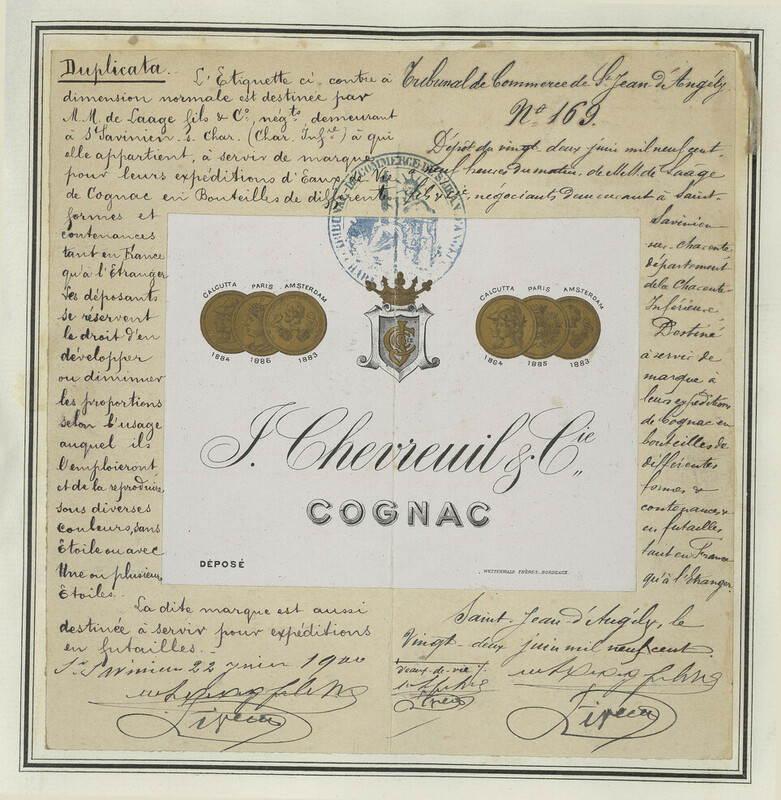 Duplicata. L'Etiquette ci contre à
dimension normale est destinée par
M.M. de Laage fils & Cº, négts, demeurant
à St Savinien s. Char. (Char. Infre) à qui
elle appartient, à servir de marque
pour leurs expéditions d'Eaux de Vie
de Cognac en Bouteilles de différentes
formes et
contenances
tant en France
qu'à l'Étranger
Les déposants
se réservent
le droit d'en
développer
ou diminuer
les proportions
selon l'usage
auquel ils
l'emploieront
et de la reproduire
sous diverses
couleurs, sans
Étoile ou avec
Une ou plusieurs
Étoiles.
La dite marque est aussi
destinée à servir pour expéditions
en futailles.
St Savinien 22 juin 1900
Tribunal de Commerce de St Jean d'Angély
Nº 169.
Dépôt du vingt deux juin mil neuf cent,
à neuf heures du matin, de MM. de Laage
fils & Cie, négociants demeurant à Saint-
Savinien
sur Charente
département
de la Charente
Inférieure
Destiné
à servir de
marque à
leurs expéditions
de Cognac en
bouteilles de
différentes
formes &
contenances &
en futailles
tant en France
qu'à l'Etranger.
Saint-Jean-d'Angély, le
Vingt-deux juin mil neuf cent.
d'eaux-de-vie
CALCUTTA PARIS AMSTERDAM
1884 1885 1883
CALCUTTA PARIS AMSTERDAM
1884 1885 1883
J. Chevreuil & Cie
COGNAC
DÉPOSÉ
WETTERWALD FRÈRES. BORDEAUX.